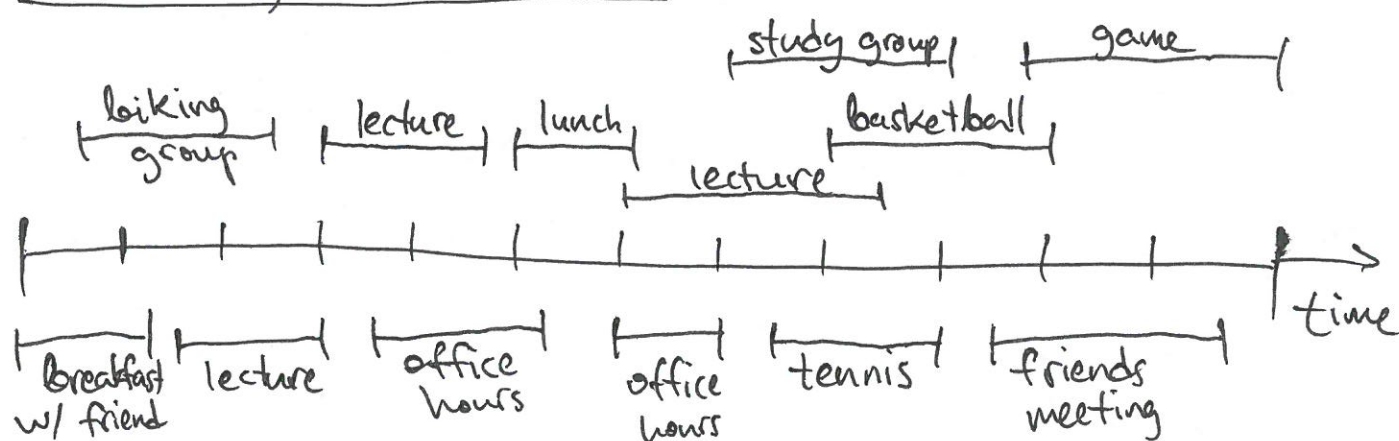 study group
game
biking
group
lecture
lunch
basketball
lecture
time
breakfast
w/ friend
lecture
office
hours
office
hours
tennis
friends
meeting